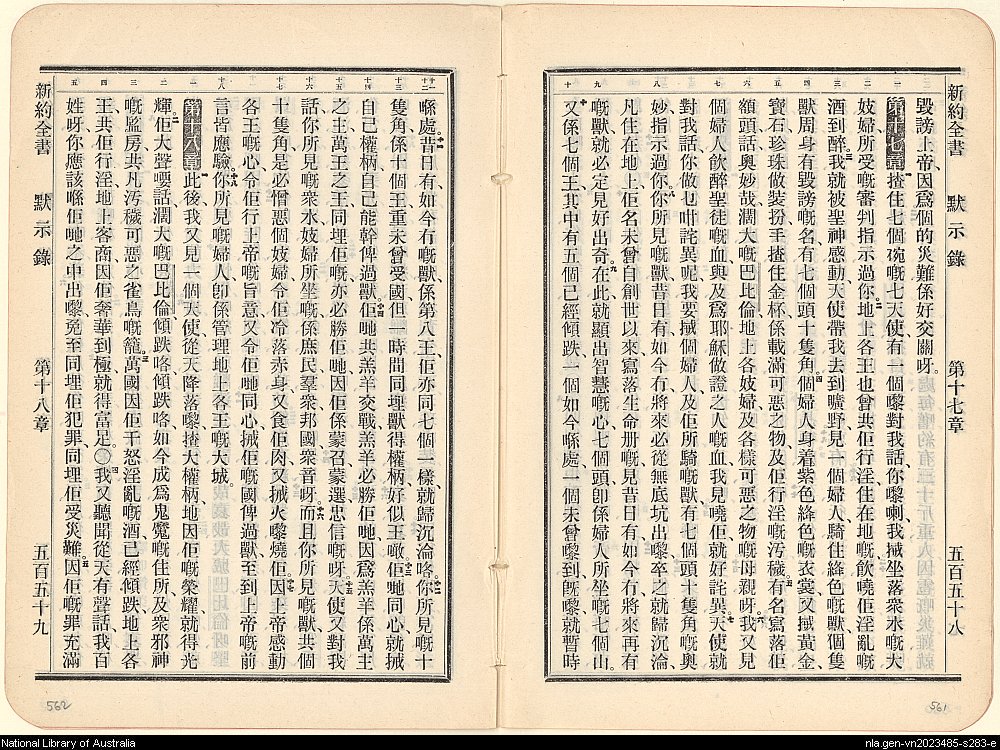 新約全書　默示錄　第十七章　五百五十八
毀謗上帝、因爲個的災難係好交關呀。
第十七章 揸住七個碗嘅七天使、有一個嚟對我話、你嚟喇、我搣坐落衆水嘅大
妓婦所受嘅審判指示過你。地上各王也曾共佢行淫、住在地嘅飲曉佢淫亂嘅
酒到醉。我就被聖神感動、天使帶我去到曠野、見一個婦人、騎住絳色嘅獸、個隻
獸周身有毀謗嘅名、有七個頭十隻角。個婦人身着紫色絳色嘅衣裳、又搣黃金
寶石珍珠做裝扮、手揸住金杯、係載滿可惡之物、及佢行淫嘅汚穢。有名寫落佢
額頭、話奧妙哉、濶大嘅巴比倫、地上各妓婦及各樣可惡之物嘅母親呀。我又見
個婦人飲醉聖徒嘅血、與及爲耶穌做證之人嘅血、我見曉佢、就好詫異。天使就
對我話、你做乜咁詫異呢、我要搣個婦人、及佢所騎嘅獸、有七個頭十隻角嘅奧
妙、指示過你。你所見嘅獸、昔日有、如今冇、將來必從無底坑出嚟、卒之就歸沉淪、
凡住在地上、佢名未曾自創世以來、寫落生命册嘅、見昔日有、如今冇、將來再有
嘅獸、就必定見好出奇。在此就顯出智慧嘅心、七個頭卽係婦人所坐嘅七個山。
又係七個王、其中有五個已經傾跌、一個如今喺處、一個未曾嚟到、旣嚟就暫時
喺處。昔日有、如今冇嘅獸、係第八王、佢亦同七個一樣、就歸沉淪咯。你所見嘅十
隻角、係十個王、重未曾受國、但一時間同埋獸得權柄、好似王噉。佢哋同心、就搣
自己權柄、自己能幹、俾過獸。佢哋共羔羊交戰、羔羊必勝佢哋、因爲羔羊係萬主
之主、萬王之王、同埋佢嘅亦必勝佢哋、因佢係蒙召蒙選忠信嘅呀。天使又對我
話、你所見嘅衆水、妓婦所坐嘅、係庶民羣衆邦國衆音呀。而且你所見嘅獸、共個
十隻角、是必憎惡個妓婦、令佢冷落赤身、又食佢肉、又搣火嚟燒佢。因上帝感動
各王嘅心、令佢行上帝嘅旨意、又令佢哋同心、搣佢嘅國俾過獸、至到上帝嘅前
言皆應驗。你所見嘅婦人、卽係管理地上各王嘅大城。
第十八章 此後我又見一個天使、從天降落嚟、揸大權柄、地因佢嘅榮耀就得光
輝。佢大聲嗌話、濶大嘅巴比倫傾跌咯、傾跌咯、如今成爲鬼魔嘅住所、及衆邪神
嘅監房、共凡汚穢可惡之雀鳥嘅籠。萬國因佢干怒淫亂嘅酒、已經傾跌、地上各
王共佢行淫、地上客商、因佢奢華到極、就得富足。〇我又聽聞從天有聲話、我百
姓呀、你應該喺佢哋之中出嚟、免至同埋佢犯罪、同埋佢受災難。因佢嘅罪充滿
新約全書　默示錄　第十八章　五百五十九
562
561
National Library of Australia
nla.gen-vn2023485-s283-e